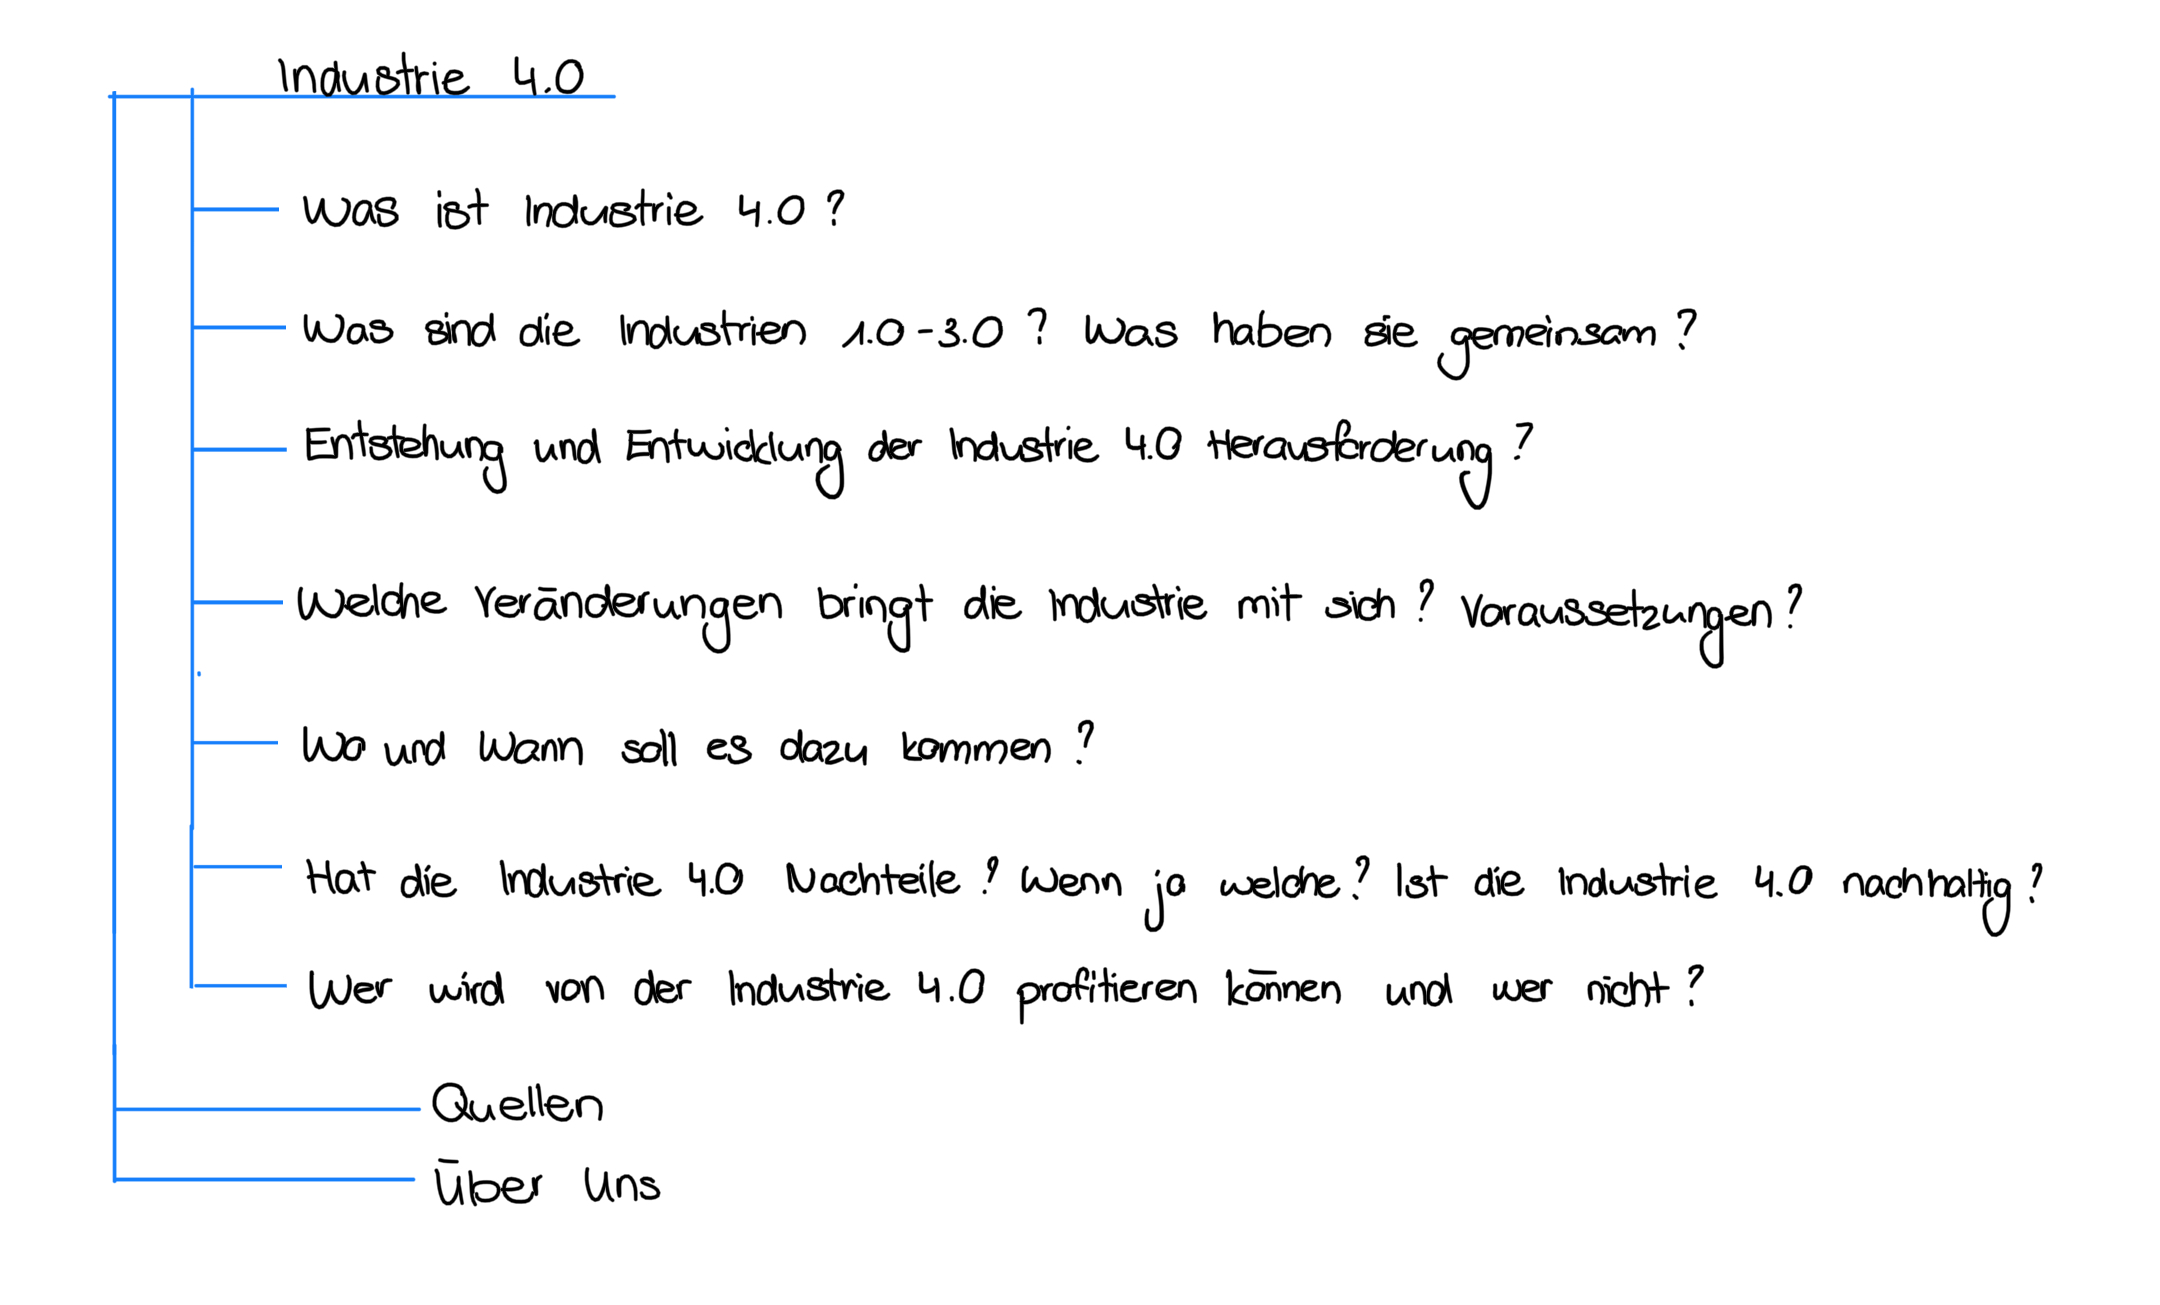 Industrie 4.0
Was ist Industrie 4.0?
Was sind die Industrien 1.0-3.0? Was haben sie gemeinsam?
Entstehung und Entwicklung der Industrie 4.0 Herausforderung?
Welche Veränderungen bringt die Industrie mit sich? Voraussetzungen?
Wo und Wann soll es dazu kommen?
Hat die Industrie 4.0 Nachteile? Wenn ja welche? Ist die Industrie 4.0 nachhaltig?
Wer wird von der Industrie 4.0 profitieren können und wer nicht?
Quellen
Über Uns